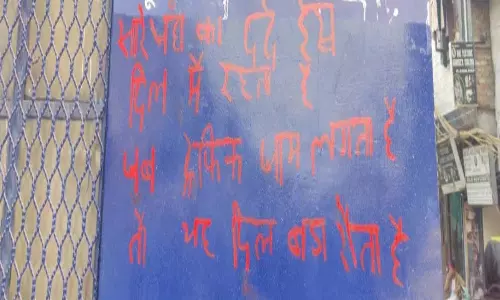 सारे पंच का दर्द इस
दिल में रहता है
जब ट्रेफिक जाम लगता है
तो यह दिल बडा रोता है